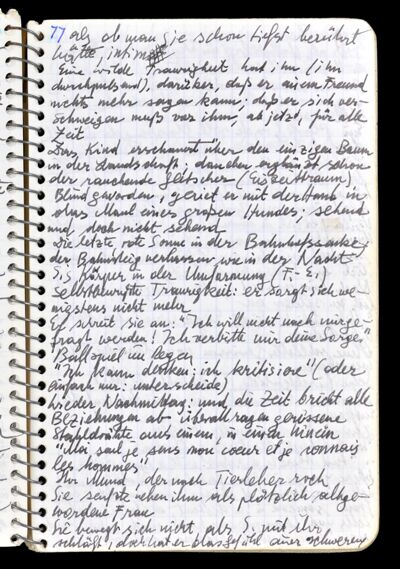 77 als ob man sie schon tiefst berührt
hätte, intim
Eine wilde Traurigkeit hat ihn (ihn
durchpulsend), darüber, daß er einem Freund
nichts mehr sagen kann; daß er sich ver-
schweigen muß vor ihm, ab jetzt, für alle
Zeit
Das Kind erschauert über den einzigen Baum
in der Landschaft; daneben erglänzt schon
der rauchende Gletscher (Eiszeittraum)
Blind geworden, geriet er mit der Hand in
das Maul eines großen Hundes; sehend
und doch nicht sehend
Die letzte rote Sonne in der Bahnhofs
der Bahnsteig verlassen wie in der Nacht
S.'s Körper in der Umformung
Selbstbewußte Traurigkeit: er sorgt sich we-
nigstens nicht mehr
Er schreit sie an: "Ich will nicht nach mir ge-
fragt werden! Ich verbitte mir deine Sorge"
Ballspiel im Regen
"Ich kann denken: ich kritisiere" (oder
einfach nur: unterscheide)
Wieder Nachmittag: und die Zeit bricht alle
Beziehungen ab überall ragen gerissene
Stahldrähte aus einem, in einen hinein
"Moi seul je sens mon coeur et je connais
les hommes"
Ihr Mund, der nach Tierleber roch
Sie seufzte neben ihm als plötzlich altge-
wordene Frau
Sie bewegt sich nicht, als S. mit ihr
schläft, doch hat er das Gefühl einer schweren